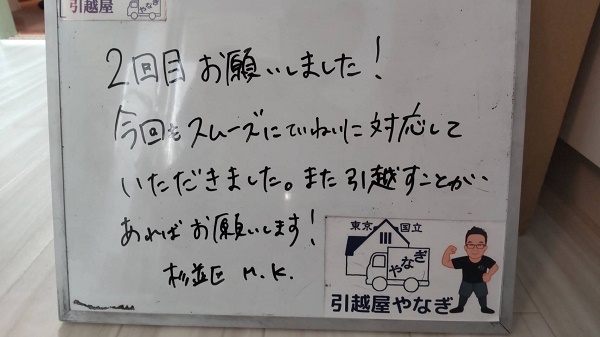 引越屋
やなぎ
2回目 お願いしました!
今回も スムーズに ていねいに 対応して
いただきました。また 引越すことが、
あれば お願いします!
杉並区 M.K.
東京 国立
やなぎ
引越屋やなぎ